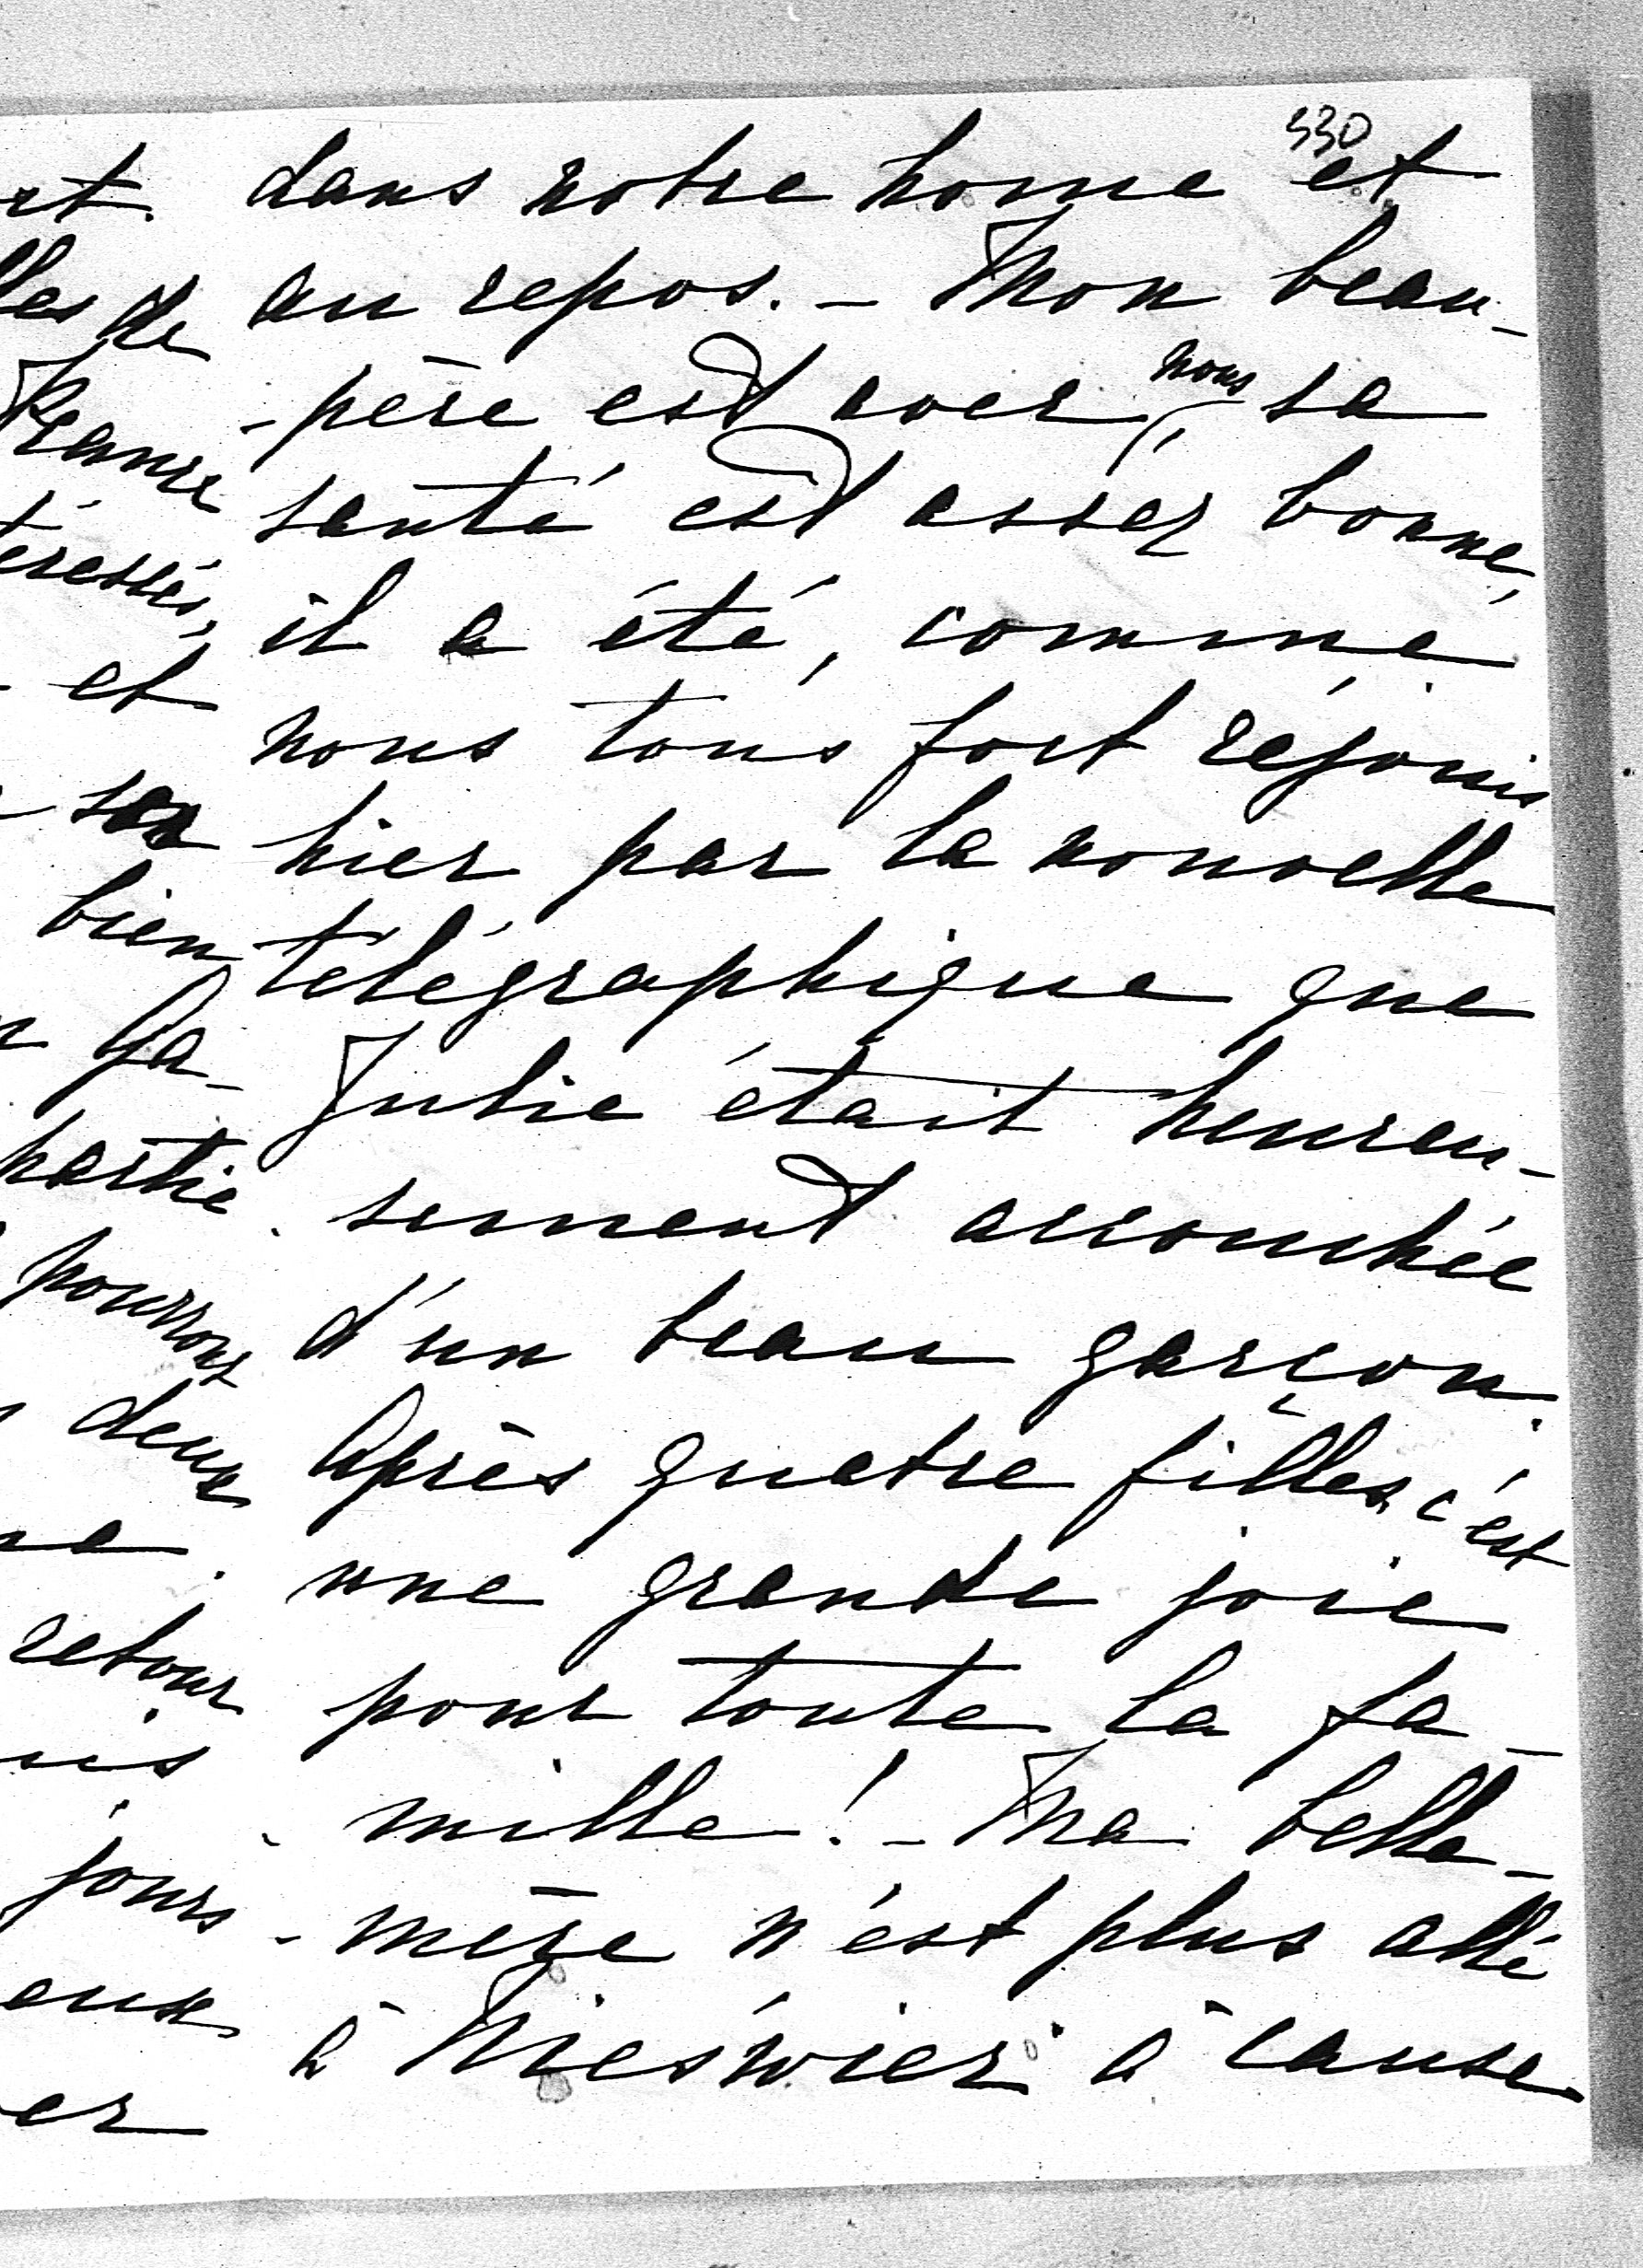 330
dans notre home et
au repos. - Mon beau-
-père est avec nous, sa
santé est assez bonne,
il a été, comme
nous tous fort réjouis
hier par la nouvelle
télégraphique que
Julie était heureu-
sement accouchée
d'un beau garçon.
Après quatre filles, c'est
une grande joie
pour toute la fa-
mille! - Ma belle-
-mère n'est plus allé
à Nieswiez à cause
et
lles de
France
téressés,
et
son
bien
Ga-
partie
pourrons
deux
retour
jours